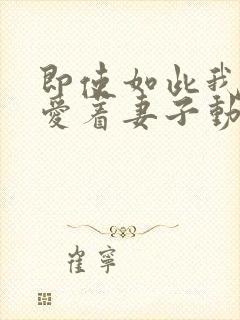 即使如此我
愛着妻子動
崔寧